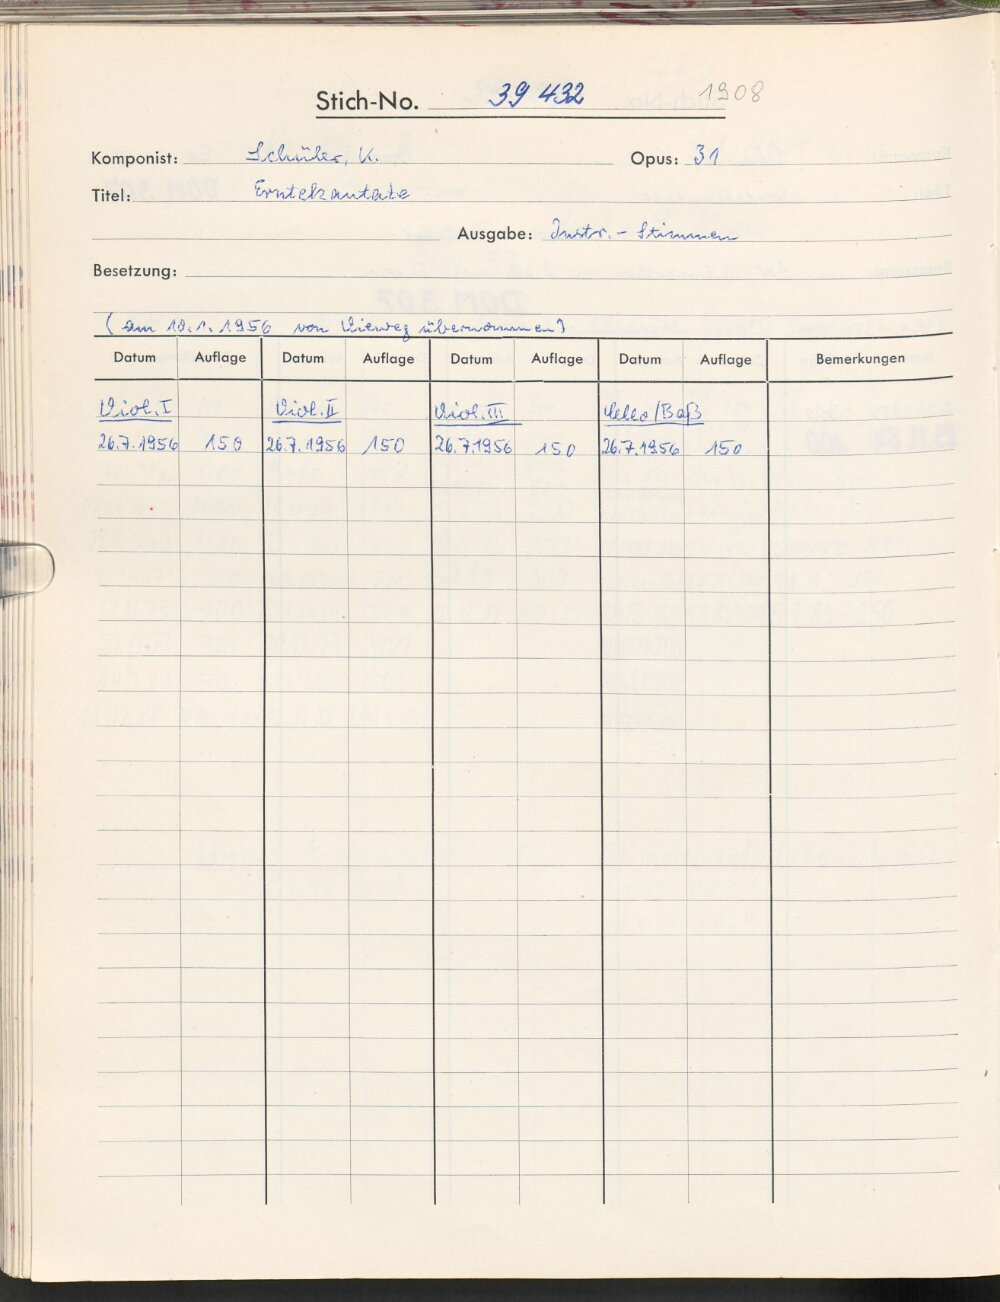 Stich-No. 39 432 1908
Komponist: Schüler, K. Opus: 31
Titel: Erntekantate
Ausgabe: Instr.- Stimmen
Besetzung:
(am 19.1.1956 von Vieweg übernommen)
Datum Auflage Datum Auflage Datum Auflage Datum Auflage Bemerkungen
Viol. I Viol. II Viol. III Cello/Baß
26.7.1956 150 26.7.1956 150 26.7.1956 150 26.7.1956 150